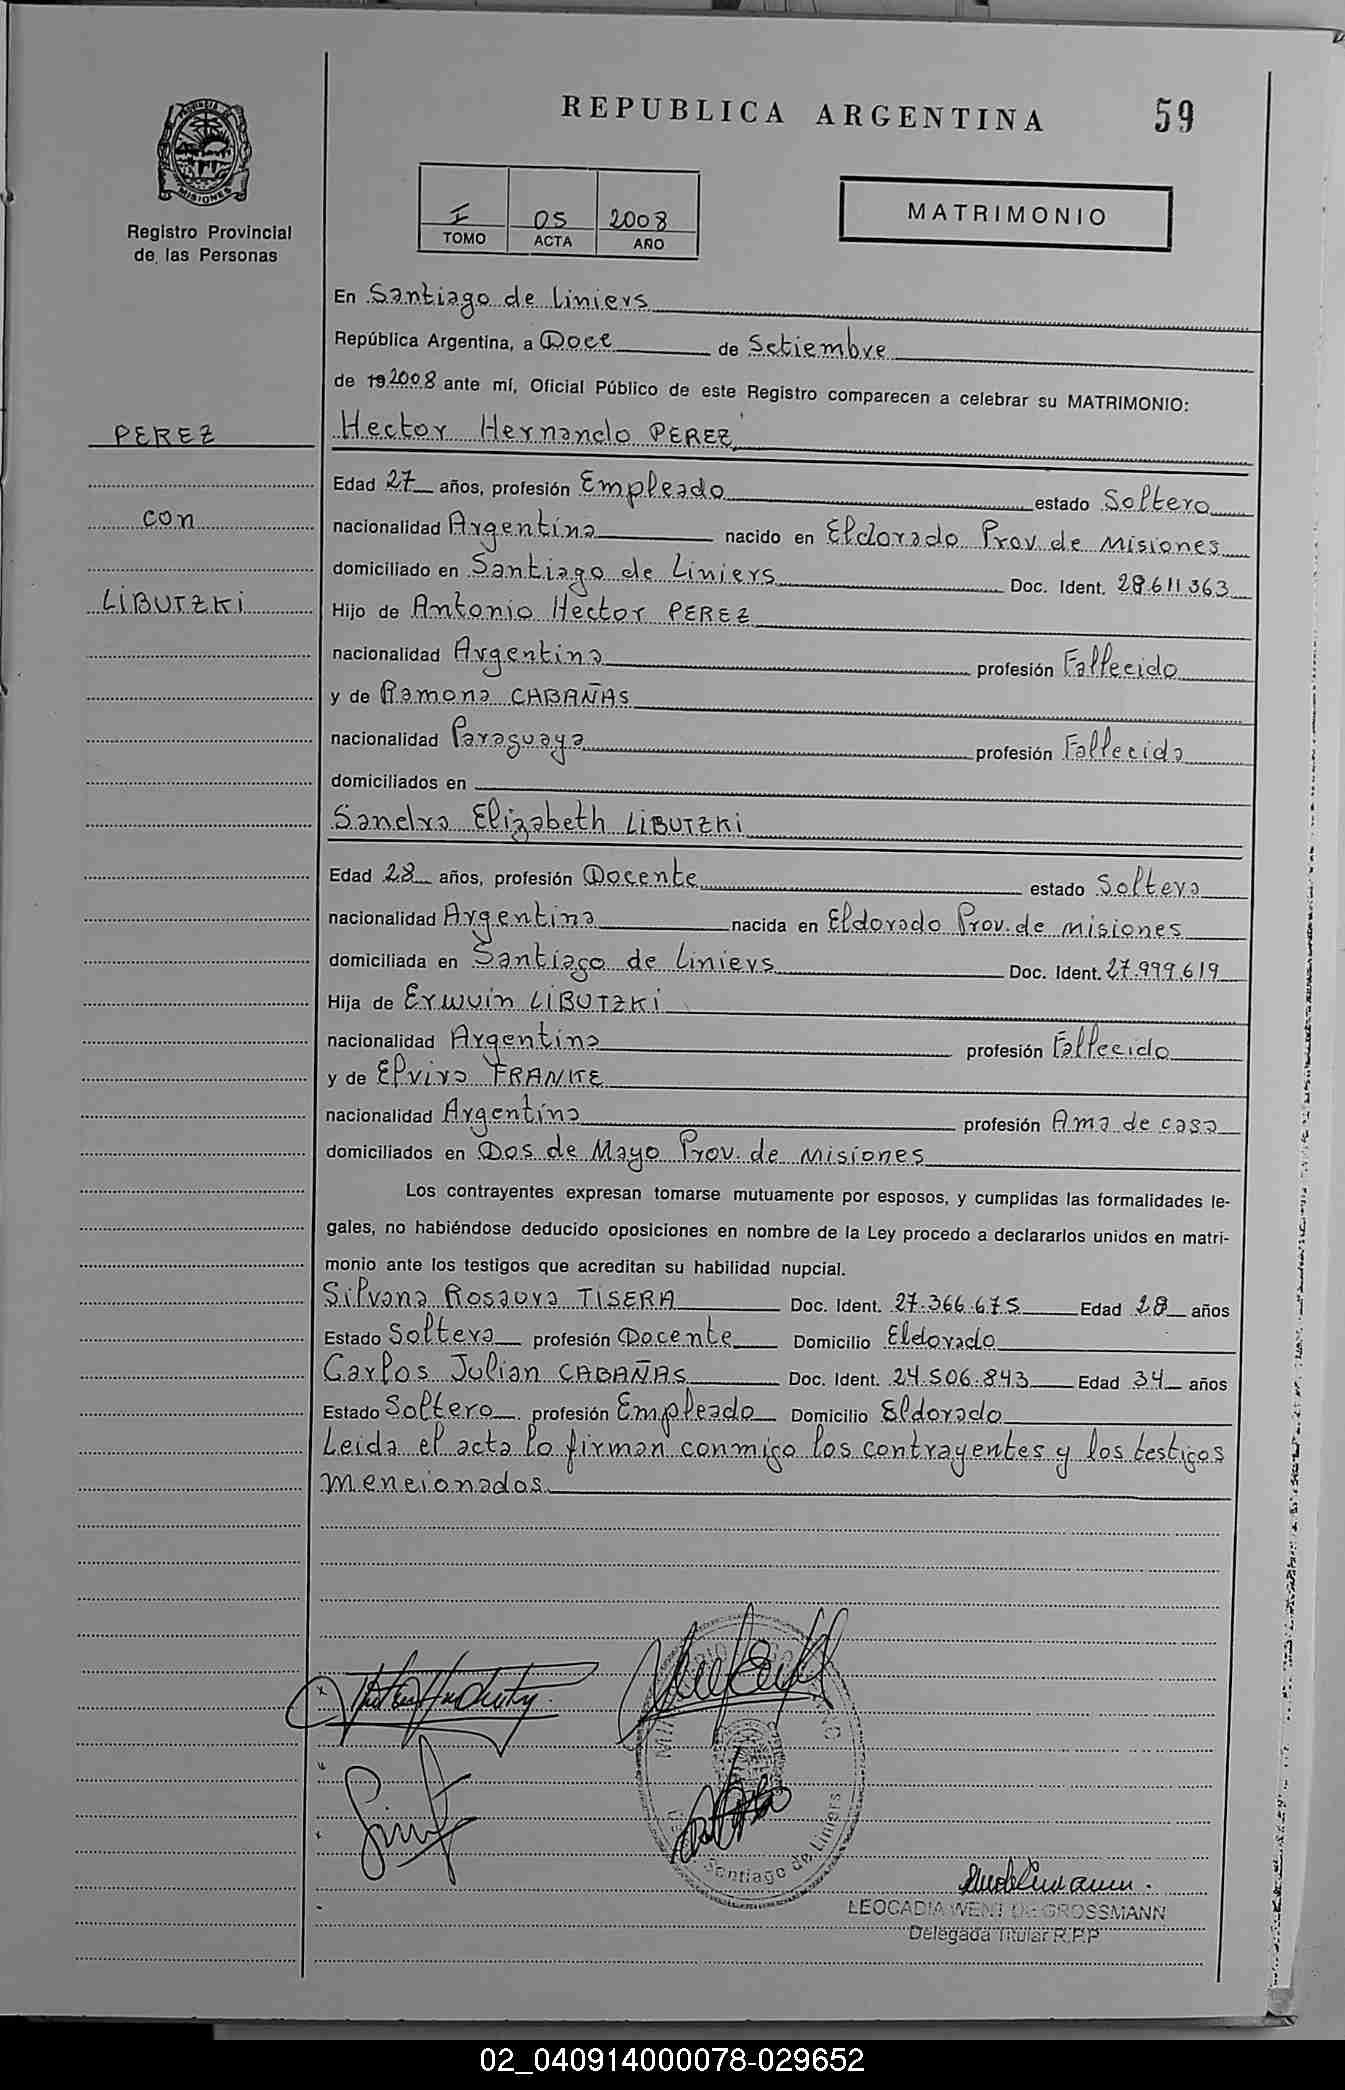 REPUBLICA ARGENTINA
59
PROVINCIA
MISIONES
Registro Provincial
de las Personas
I 05 2008
TOMO ACTA AÑO
MATRIMONIO
En Santiago de Liniers
República Argentina, a Doce de Setiembre
de 19 2008 ante mí, Oficial Público de este Registro comparecen a celebrar su MATRIMONIO:
PEREZ
con
LIBUTZKI
Hector Hernando PEREZ
Edad 27 años, profesión Empleado estado Soltero
nacionalidad Argentina nacido en Eldorado Prov. de Misiones
domiciliado en Santiago de Liniers Doc. Ident. 28.611.363
Hijo de Antonio Hector PEREZ
nacionalidad Argentina profesión Fallecido
y de Ramona CABAÑAS
nacionalidad Paraguaya profesión Fallecida
domiciliados en
Sandra Elizabeth LIBUTZKI
Edad 28 años, profesión Docente estado Soltera
nacionalidad Argentina nacida en Eldorado Prov. de Misiones
domiciliada en Santiago de Liniers Doc. Ident. 27.999.619
Hija de Erwuin LIBUTZKI
nacionalidad Argentina profesión Fallecido
y de Elvira FRANKE
nacionalidad Argentina profesión Ama de casa
domiciliados en Dos de Mayo Prov. de Misiones
Los contrayentes expresan tomarse mutuamente por esposos, y cumplidas las formalidades le-
gales, no habiéndose deducido oposiciones en nombre de la Ley procedo a declararlos unidos en matri-
monio ante los testigos que acreditan su habilidad nupcial.
Silvana Rosaura TISERA Doc. Ident. 27.366.675 Edad 28 años
Estado Soltera profesión Docente Domicilio Eldorado
Carlos Julian CABAÑAS Doc. Ident. 24.506.843 Edad 34 años
Estado Soltero profesión Empleado Domicilio Eldorado
Leida el acta lo firman conmigo los contrayentes y los testigos
mencionados
Santiago de Liniers
LEOCADIA WENT DE GROSSMANN
Delegada Titular R.P.P
02_040914000078-029652